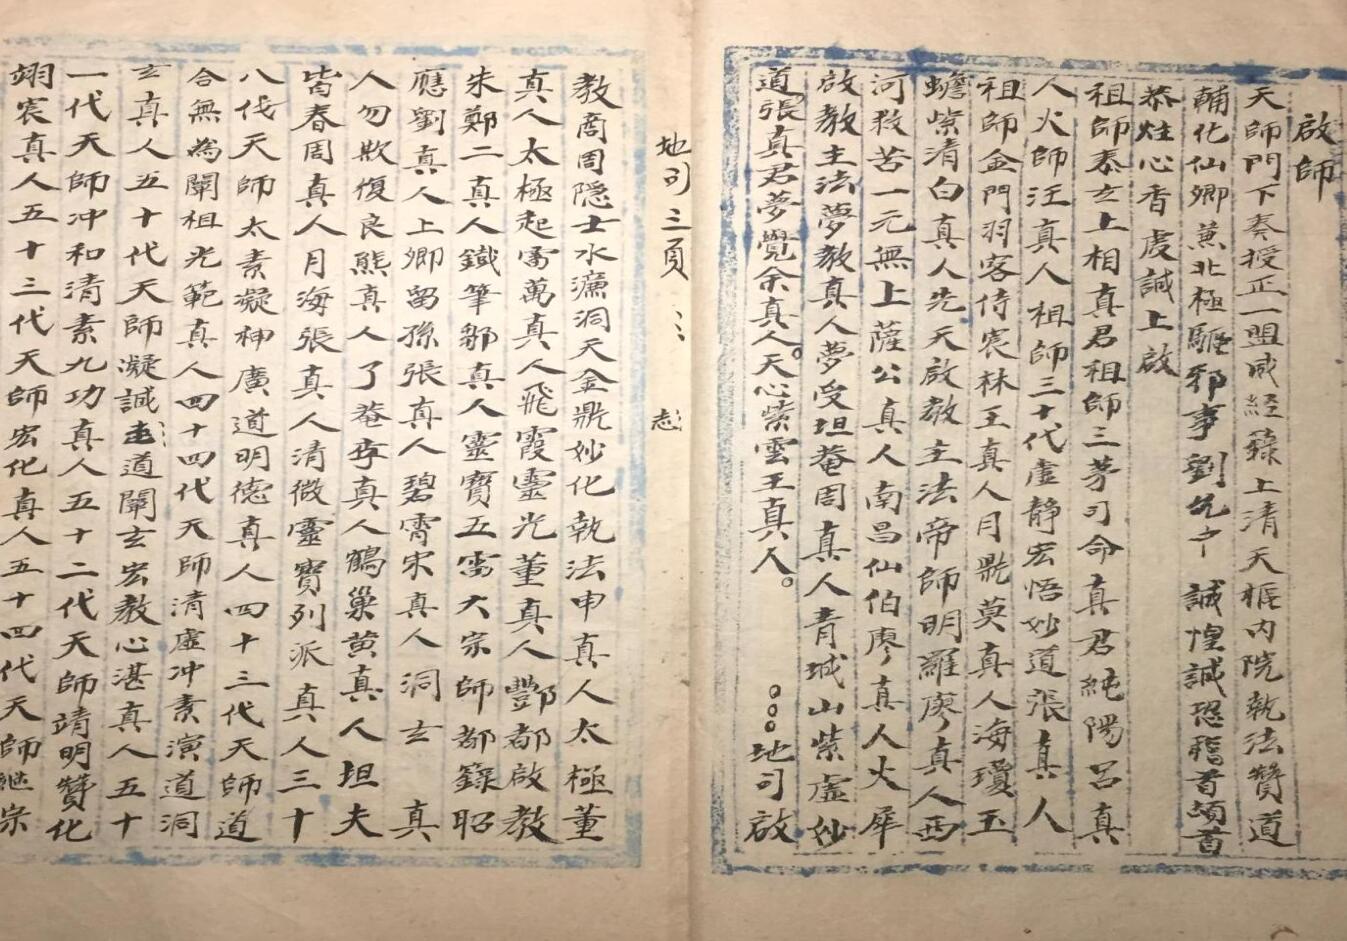 啟師
天師門下奏授正一盟威經籙上清天樞內院執法贊道
輔化仙卿兼北極驅邪事劉 誠惶誠恐稽首頓首
恭炷心香虔誠上啟
祖師泰玄上相真君祖師三茅司命真君純陽呂真
人火師汪真人祖師三十代虛靜宏悟妙道張真人
祖師金門羽客侍宸林王真人月鼎莫真人海瓊玉
蟾紫清白真人先天啟教主法帝師明羅廖真人西
河救苦一元無上薩公真人南昌仙伯廖真人火犀
啟教主法夢教真人夢受坦菴周真人青城山紫虛妙
道張真君夢覺余真人。天心紫雲王真人。 。。。地司啟
地司三頁
教商周隱士水濂洞天金鼎妙化執法申真人太極董
真人太極起雷萬真人飛霞靈光董真人酆都啟教
朱鄭二真人鐵筆鄒真人靈寶五雷大宗師都籙昭
應劉真人上卿留孫張真人碧霄宋真人洞玄 真
人勿欺復良熊真人了菴李真人鶴巢黃真人坦夫
皆春周真人月海張真人清微靈寶列派真人三十
八代天師太素凝神廣道明德真人四十三代天師道
合無為闡祖光範真人四十四代天師清虛冲素演道洞
玄真人五十代天師凝誠志道闡玄宏教心湛真人五十
一代天師冲和清素九功真人五十二代天師靖明贊化
翊宸真人五十三代天師宏化真人五十四代天師繼宗